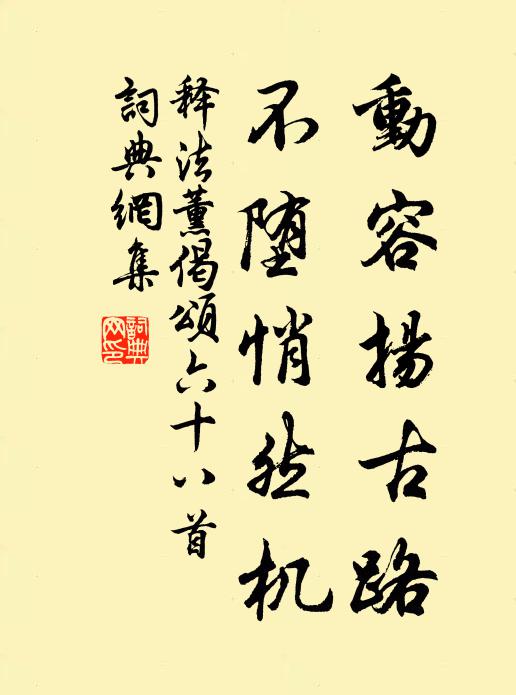 動容揚古路
不堕悄然机
释法薰偈頌六十八首
詞典網集
詞典網印